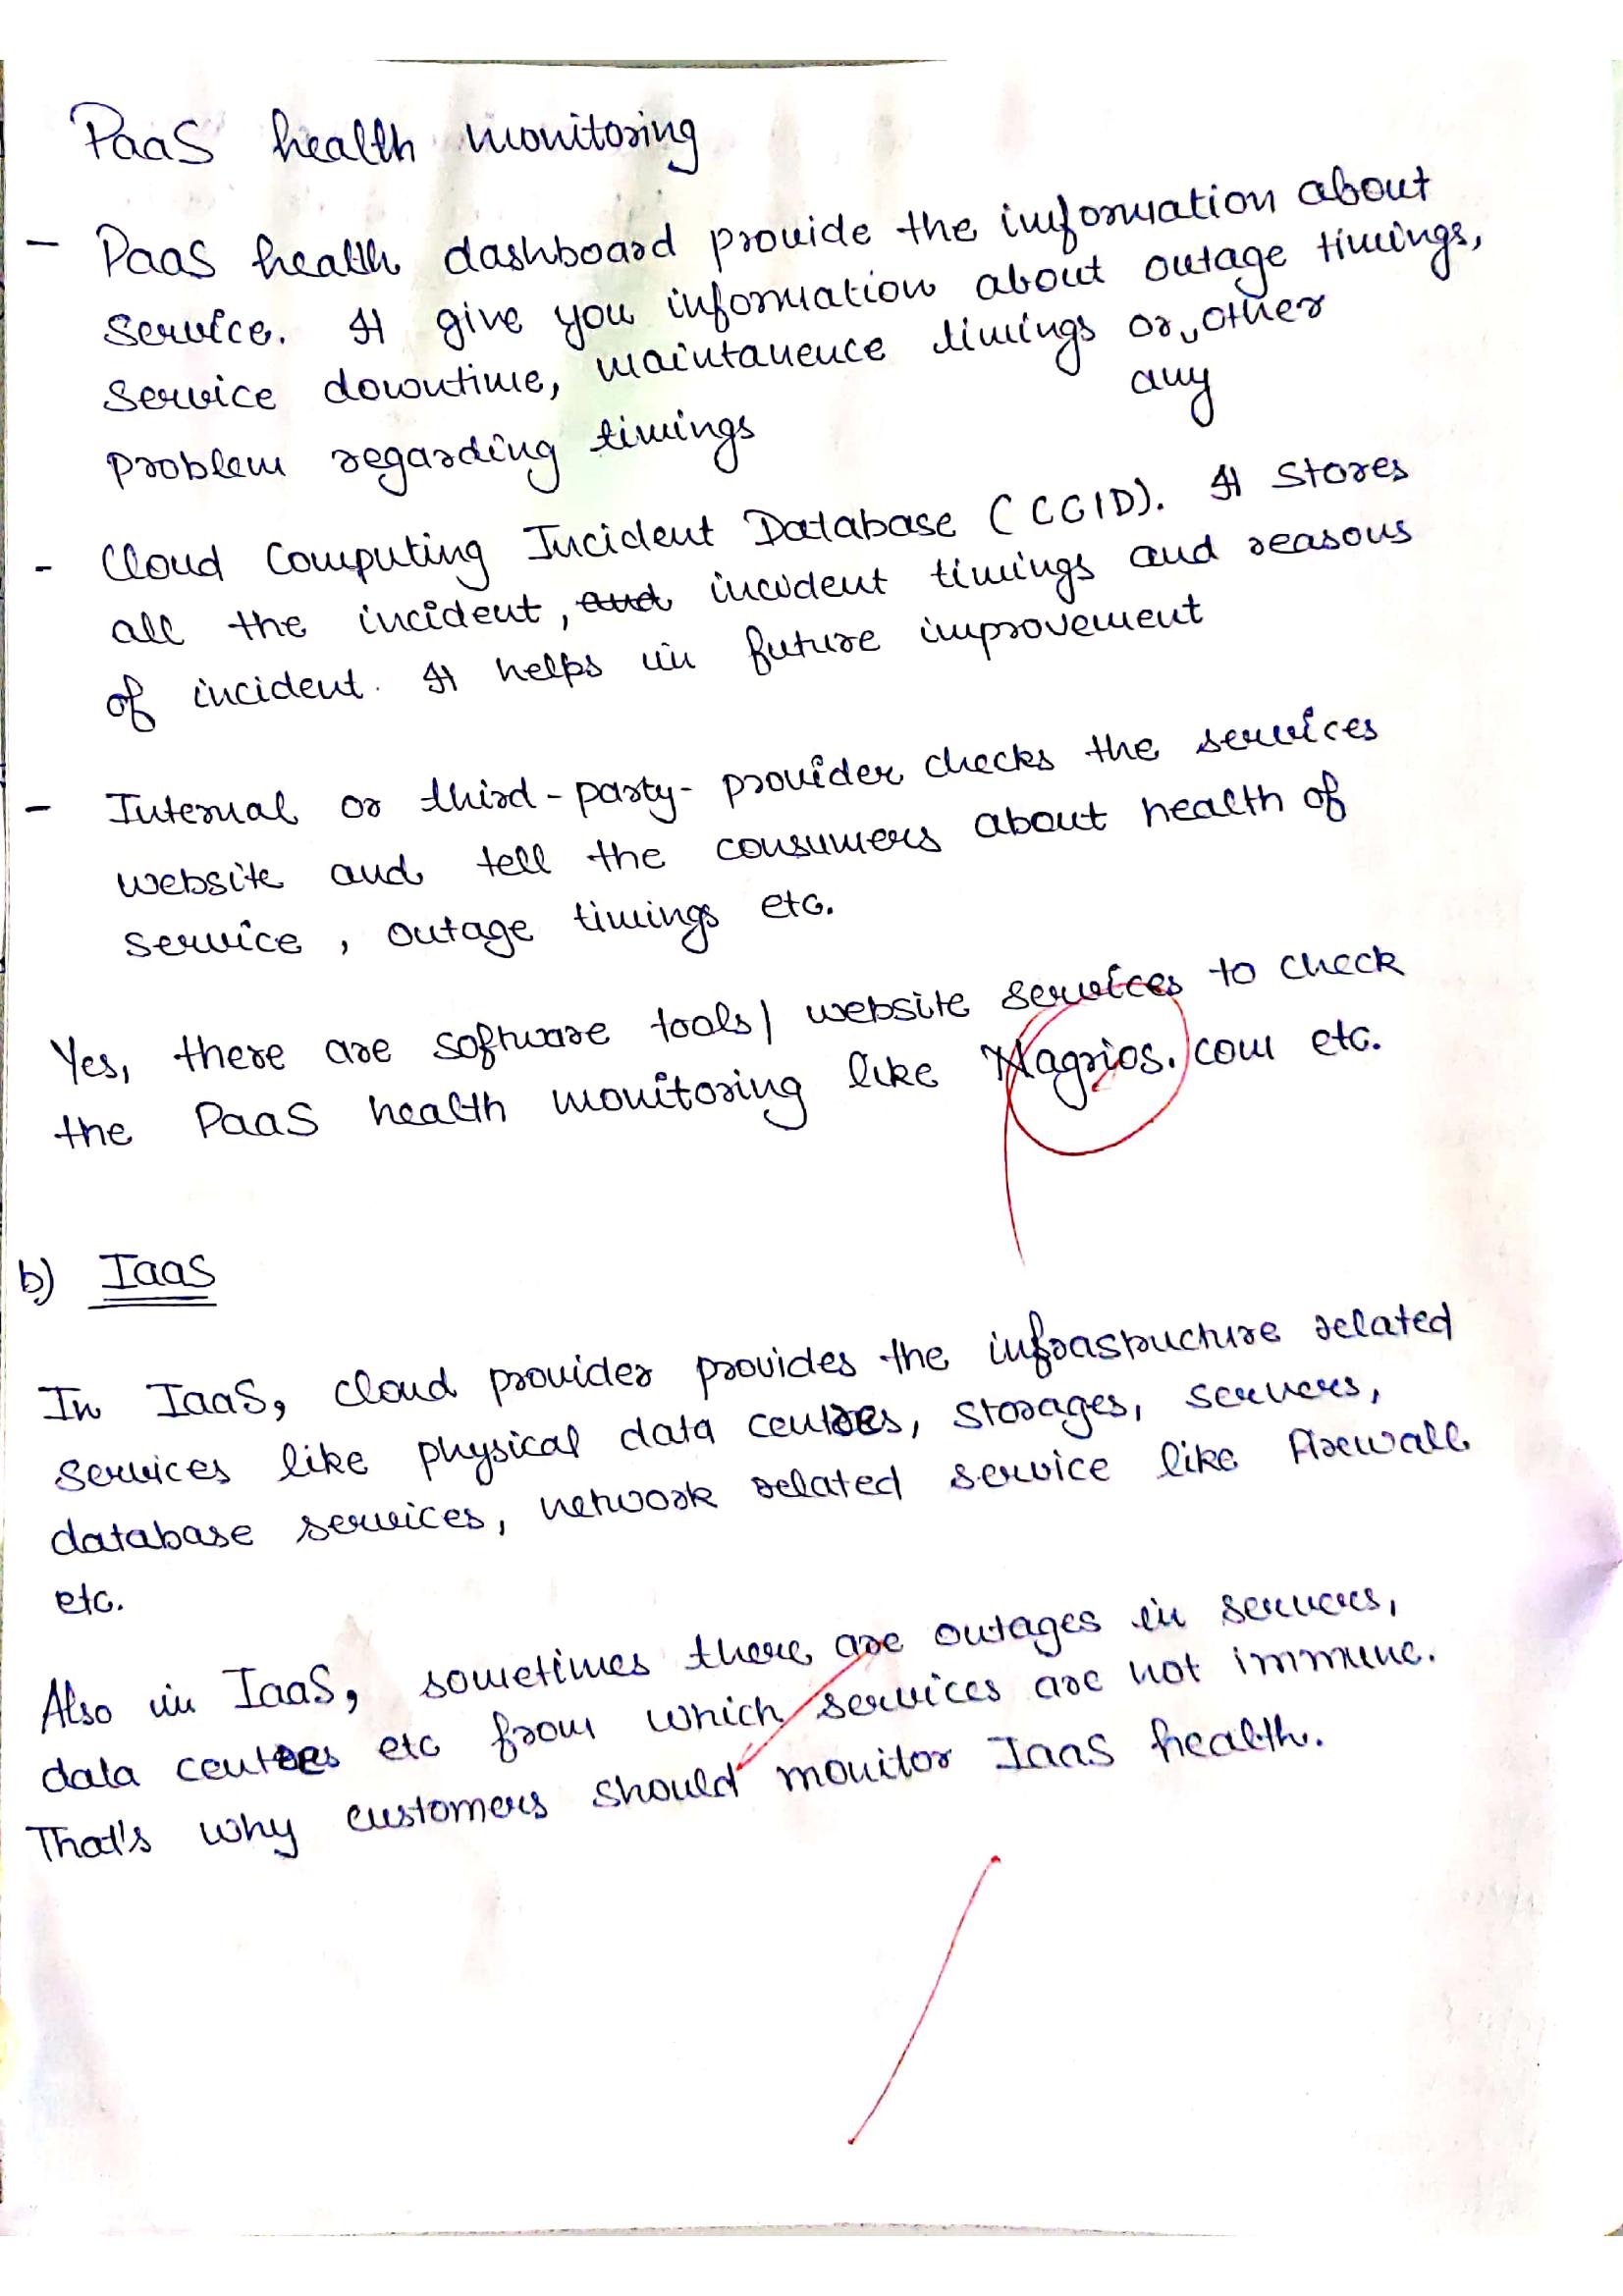 PaaS health monitoring
- PaaS health dashboard provide the information about
service. It give you information about outage timings,
service downtime, maintanence timings or any other
problem regarding timings
- Cloud Computing Incident Database (CCID). It stores
all the incident, and incident timings and reasons
of incident. It helps in future improvement
- Internal or third-party-provider checks the services
website and tell the consumers about health of
service, outage timings etc.
Yes, there are software tools/ website services to check
the PaaS health monitoring like Nagrios.com etc.
b) IaaS
In IaaS, cloud provider provides the infrastructure related
services like physical data centres, storages, servers,
database services, network related service like firewall
etc.
Also in IaaS, sometimes there are outages in servers,
data centres etc from which services are not immune.
That's why customers should monitor IaaS health.